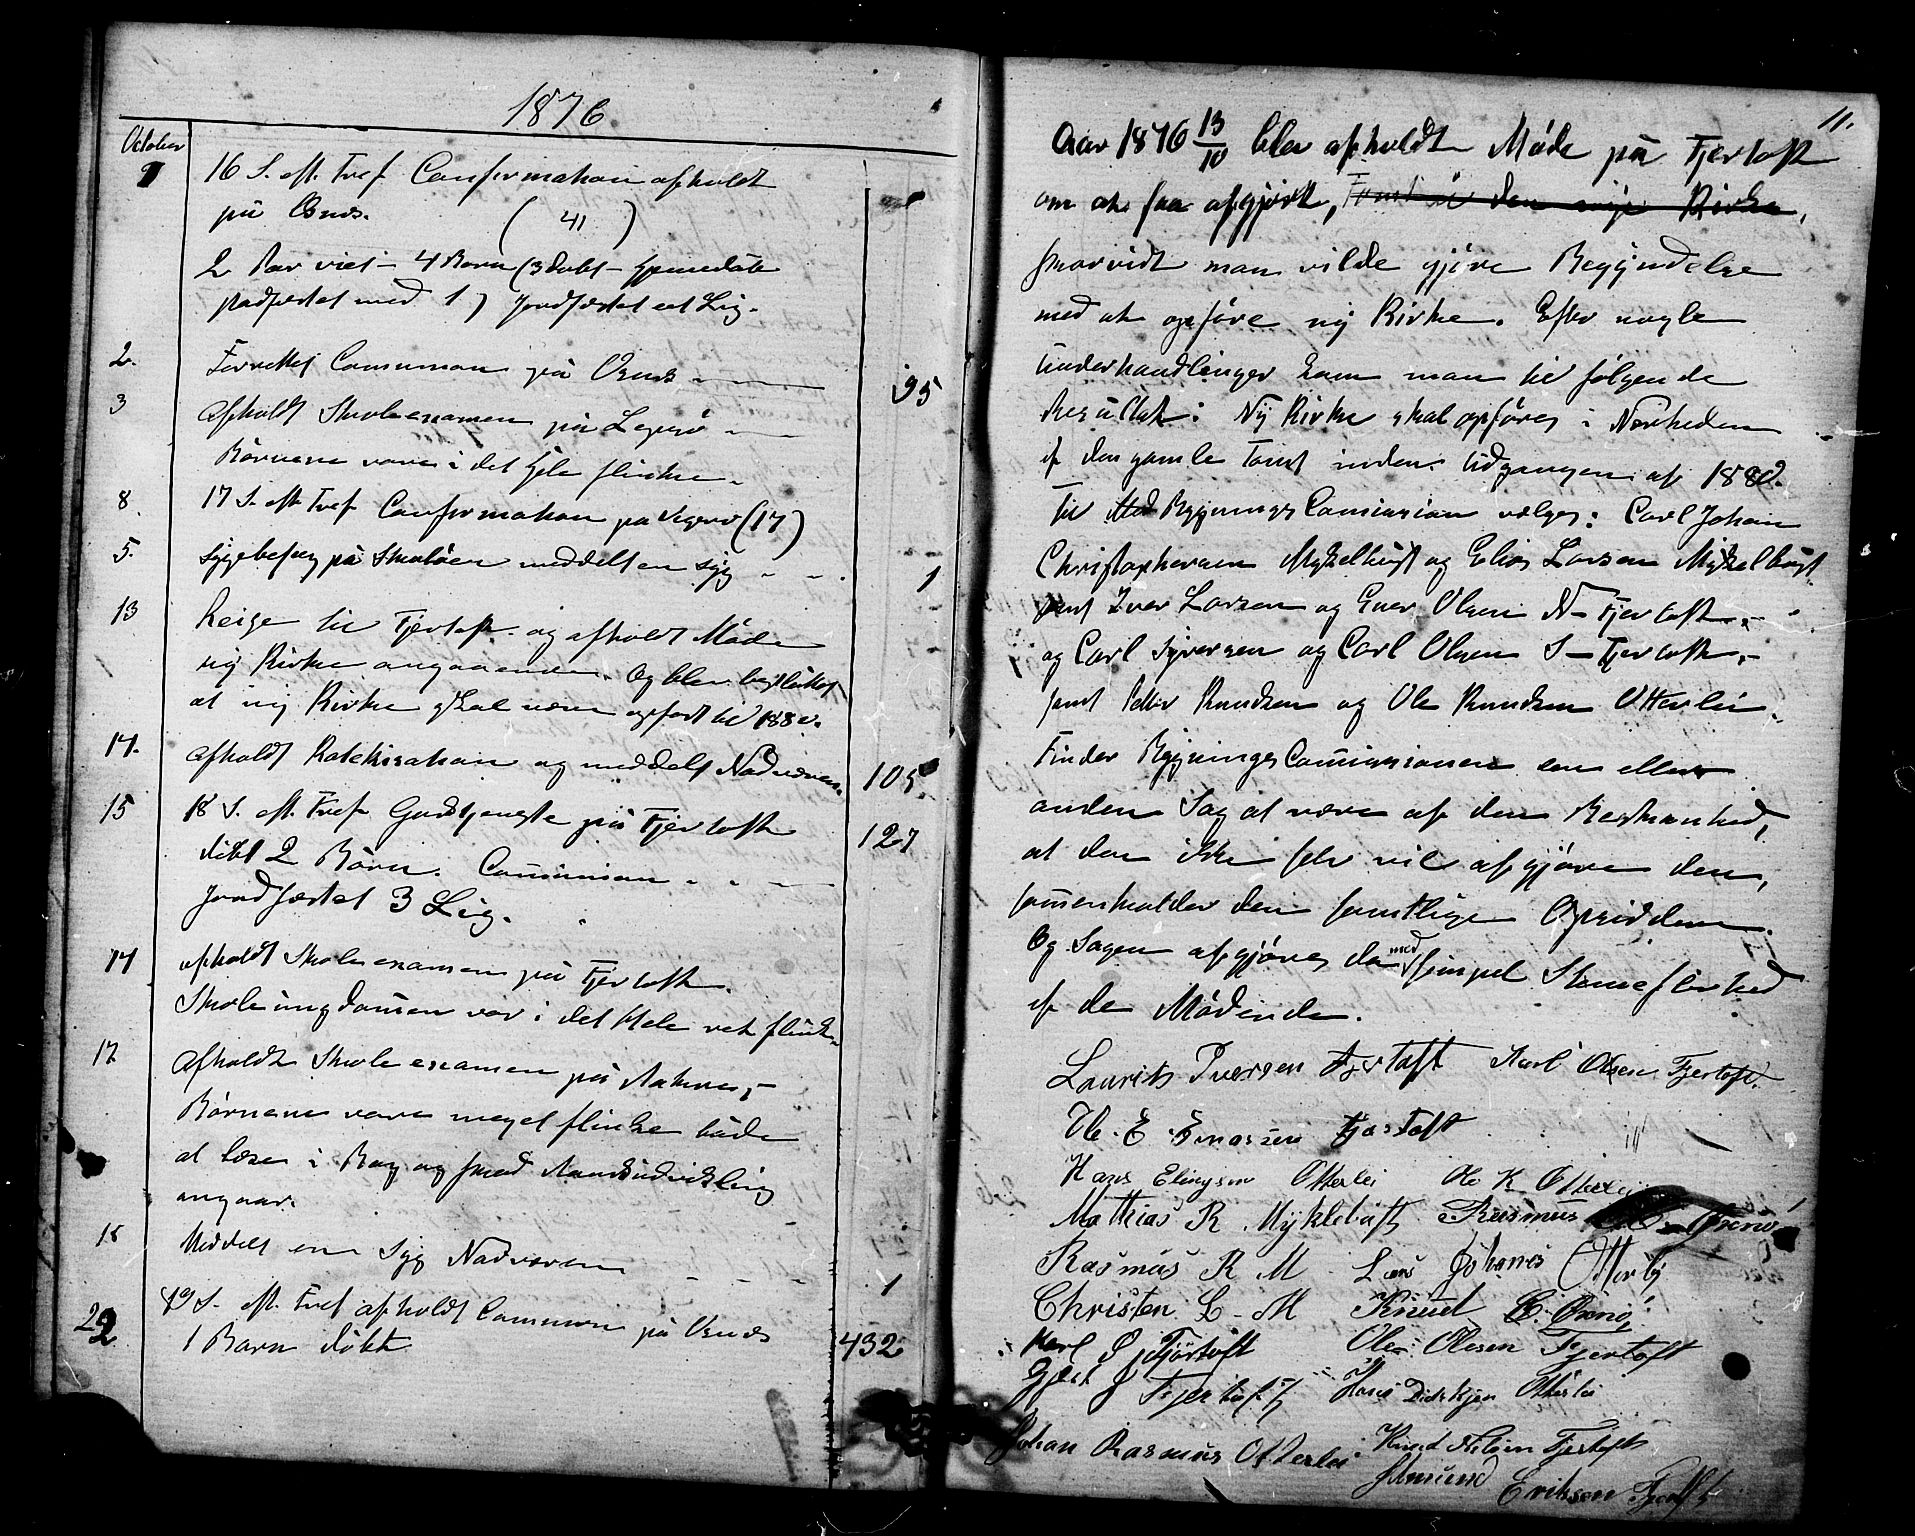 1876
October
1 16 S. eft. Tref Confirmation afholdt
på Osnæs. (41)
2 Par viet - 4 Børn (3 døbt - hjemmedøbt
stadfæstet med 1) Jordfæstet eet Lig.
2. Forrettet Communion på Osnæs 95
3 afholdt Skoleexamen på Lepsø
Børnene vare i det Hele flinke.
8. 17 S. eft Tref Confirmation på Vigerø (17)
5. Sygebesøg på Skuløen meddelt en Syg 1
13 Reise til Fjertoft og afholdt Møde
ny Kirke angaaende. Og blev besluttet
at ny Kirke skal være opført til 1880.
14. afholdt Katekisation og meddelt Nadveren. 105.
15 18 S. eft. Tref Gudstjeneste på Fjertoft 127
døbt 2 Børn. Communion
Jordfæstet 3 Lig.
14 afholdt Skoleexamen på Fjertoft.
Skoleungdommen var i det Hele ret flink.
17 afholdt Skoleexamen på
Børnene vare meget flinke både
at læse i Bog og hvad Aandsudvikling
angaar.
18 Meddelt en Syg Nadveren 1
22 19 S. eft. Tref afholdt Commun på Osnæs 432
1 Barn døbt
11.
Aar 1876 13/10 blev afholdt Møde på Fjertoft
om at faa afgjort, Tomt til den nye Kirke,
hvorvidt man vilde gjøre Begyndelse
med at opføre ny Kirke. Efter nogle
Underhandlinger kom man til følgende
Resultat: Ny Kirke skal opføres i Nærheden
af den gamle Tomt inden Udgangen af 1880.
Til Bygnings Commission vælges: Carl Johan
Christophersen Myklebust og Elias Larsen Myklebust
samt Iver Larsen og Ener Olsen N-Fjertoft,-
og Carl Syversen og Carl Olsen S-Fjertoft,-
samt Petter Knudsen og Ole Knudsen Otterlei.
Finder Bygnings Commissionen een eller
anden Sag at være af den Beskafenhed,
at den ikke selv vil afgjøre den,
sammenkalder den samtlige Opsiddere.
Og Sagen afgjøres da med simpel Stemeflerhed
af de Mødende.
Laurits Iversen Fjertoft Karl Olsen Fjertoft.
Ole. E. Enassen Fjørtoft
Hans Elingsen Otterlei Ole K Otterlei
Mathias R Myklebust Rasmus
Rasmus R M Lars Johanes Otterlei
Christen L - M Knud E.
Karl S Fjørtoft Ole Olesen Fjertoft
J Fjertoft Hans Didriksen Otterlei
Johan Rasmus Otterlei Knud Nilsen Fjertoft
Amund Eriksen Fjertoft